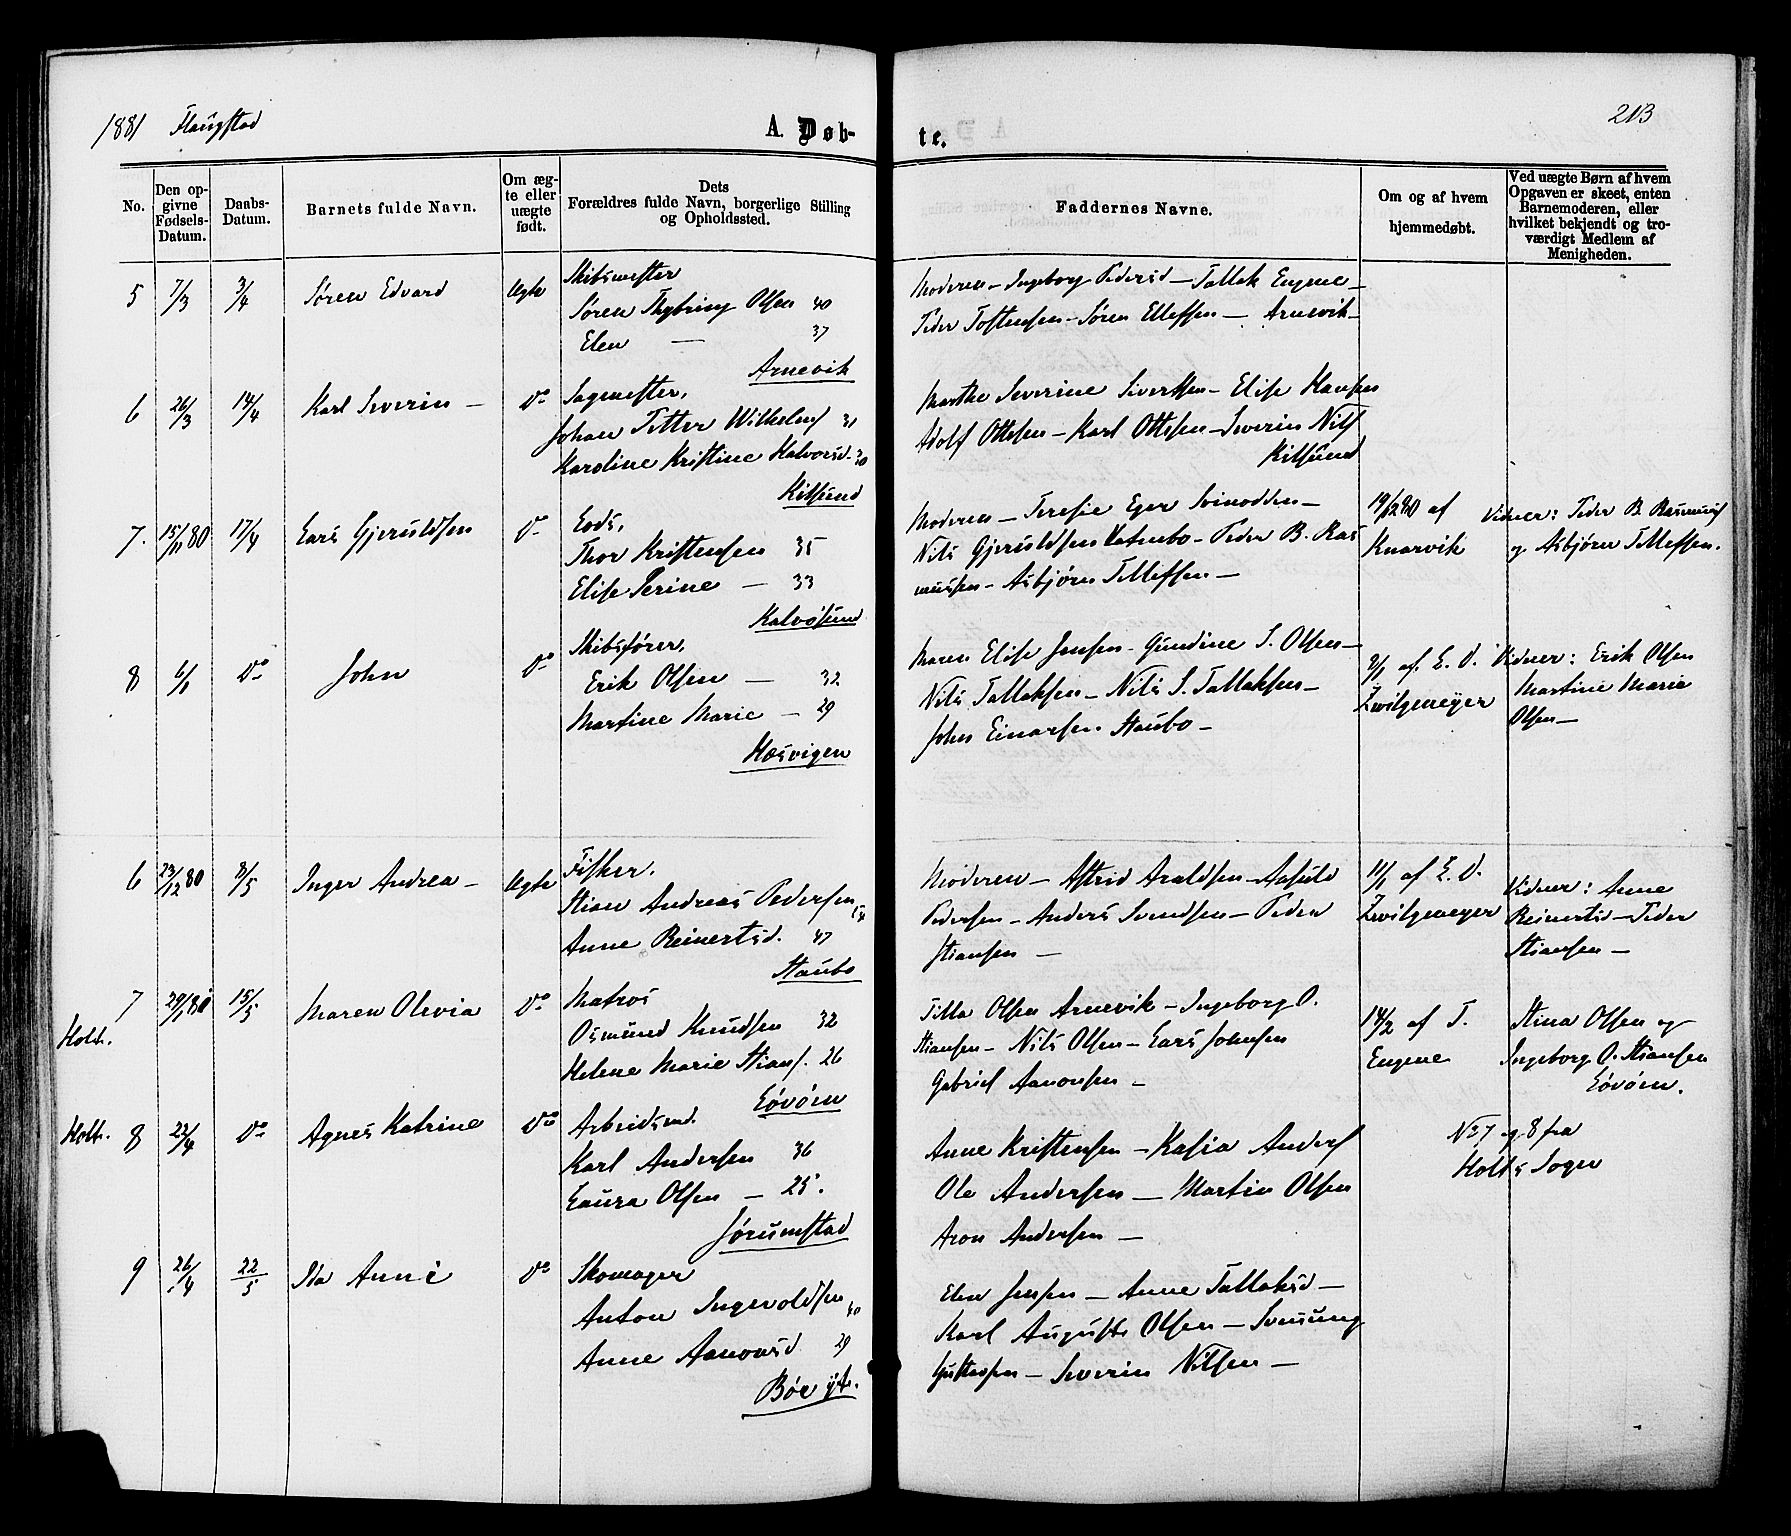 1881 Flaugstad
A. Døb-
te.
213
No.
Den opgivne Fødsels-Datum.
Daabs-Datum.
Barnets fulde Navn.
Om ægte eller uægte født.
Dets Forældres fulde Navn, borgerlige Stilling og Opholdssted.
Faddernes Navne.
Om og af hvem hjemmedøbt.
Ved uægte Børn af hvem Opgaven er skeet, enten Barnemoderen, eller hvilket bekjendt og troværdigt Medlem af Menigheden.
5 7/3 3/4 Søren Edvard Ægte
Skibsmester
Søren Thybring Olsen 40
Elen — 37
Arnevik
Moderen – Ingeborg Pedersd – Tallak Eugene –
Peder Tostensen – Søren Ellefsen – Arnevik –
6 26/3 14/4 Karl Severin – Do
Sagmester,
Johan Petter Wilhelms 31
Karoline Kristine Halvorsd – 30
Kilsund
Marthe Severine Sivertsen – Elise Hansen
Adolf Ottesen – Karl Ottesen – Severin Nils
Kilsund
7. 15/11 80 17/4 Lars Gjeruldsen Do
Lods,
Thor Kristensen 35
Elise Serine — 33
Kalvøsund
Moderen – Teresie Eger Svinodden –
Nils Gjeruldsen Vatnebo – Peder B. Ras
mussen – Asbjørn Tellefsen –
19/12 80 af
Knarvik
Vidner: Peder B. Rasmus
og Asbjørn Tellefsen.
8 6/1 Do John Do
Skibsfører,
Erik Olsen — 32
Martine Marie — 29
Hæsvigen
Maren Elise Jensen – Gundine S. Olsen –
Nils Tallaksen – Nils S. Tallaksen –
John Einarsen. Staubo –
9/1 af E. D.
Zwilgmeyer
Vidner: Erik Olsen
Martine Marie
Olsen –
6 23/12 80 8/5 Inger Andrea – Ægte
Fisker.
Stian Andreas Pedersen 54
Anne Reinertsd. 47
Staubo
Moderen – Astrid Araldsen – Aasuld
Pedersen – Anders Svendsen – Peder
Stiansen –
11/1 af E. D.
Zwilgmeyer
Vidner: Anne
Reinertsd – Peder
Stiansen –
Holt.
7 29/1 80 15/5 Maren Olevia Do
Matros
Osmund Knudsen 32
Helene Marie Stians. 26
Løvøen
Tilla Olsen Arnevik – Ingeborg O.
Stiansen – Nils Olsen – Lars Johnsen
Gabriel Aanonsen –
14/2 af T.
Eugene
Stina Olsen og
Ingeborg O. Stiansen
Løvøen.
Holt. 8 22/4 Do Agnes Katrine Do
Arbeidsmd.
Karl Andersen 36
Laura Olsen — 25.
Jørumstad
Anne Kristensen – Kasia Anders
Ole Andersen – Martin Olsen
Aron Andersen –
No 7 og 8 fra
Holts Sogn
9 26/4 22/5 Ida Anne Do
Skomager
Anton Ingevoldsen 40
Anne Aanonsd 29
Bøe yt.
Elen Jensen – Anne Tallaksd –
Karl August Olsen – Svenung
Gustavsen – Severin Nilsen –